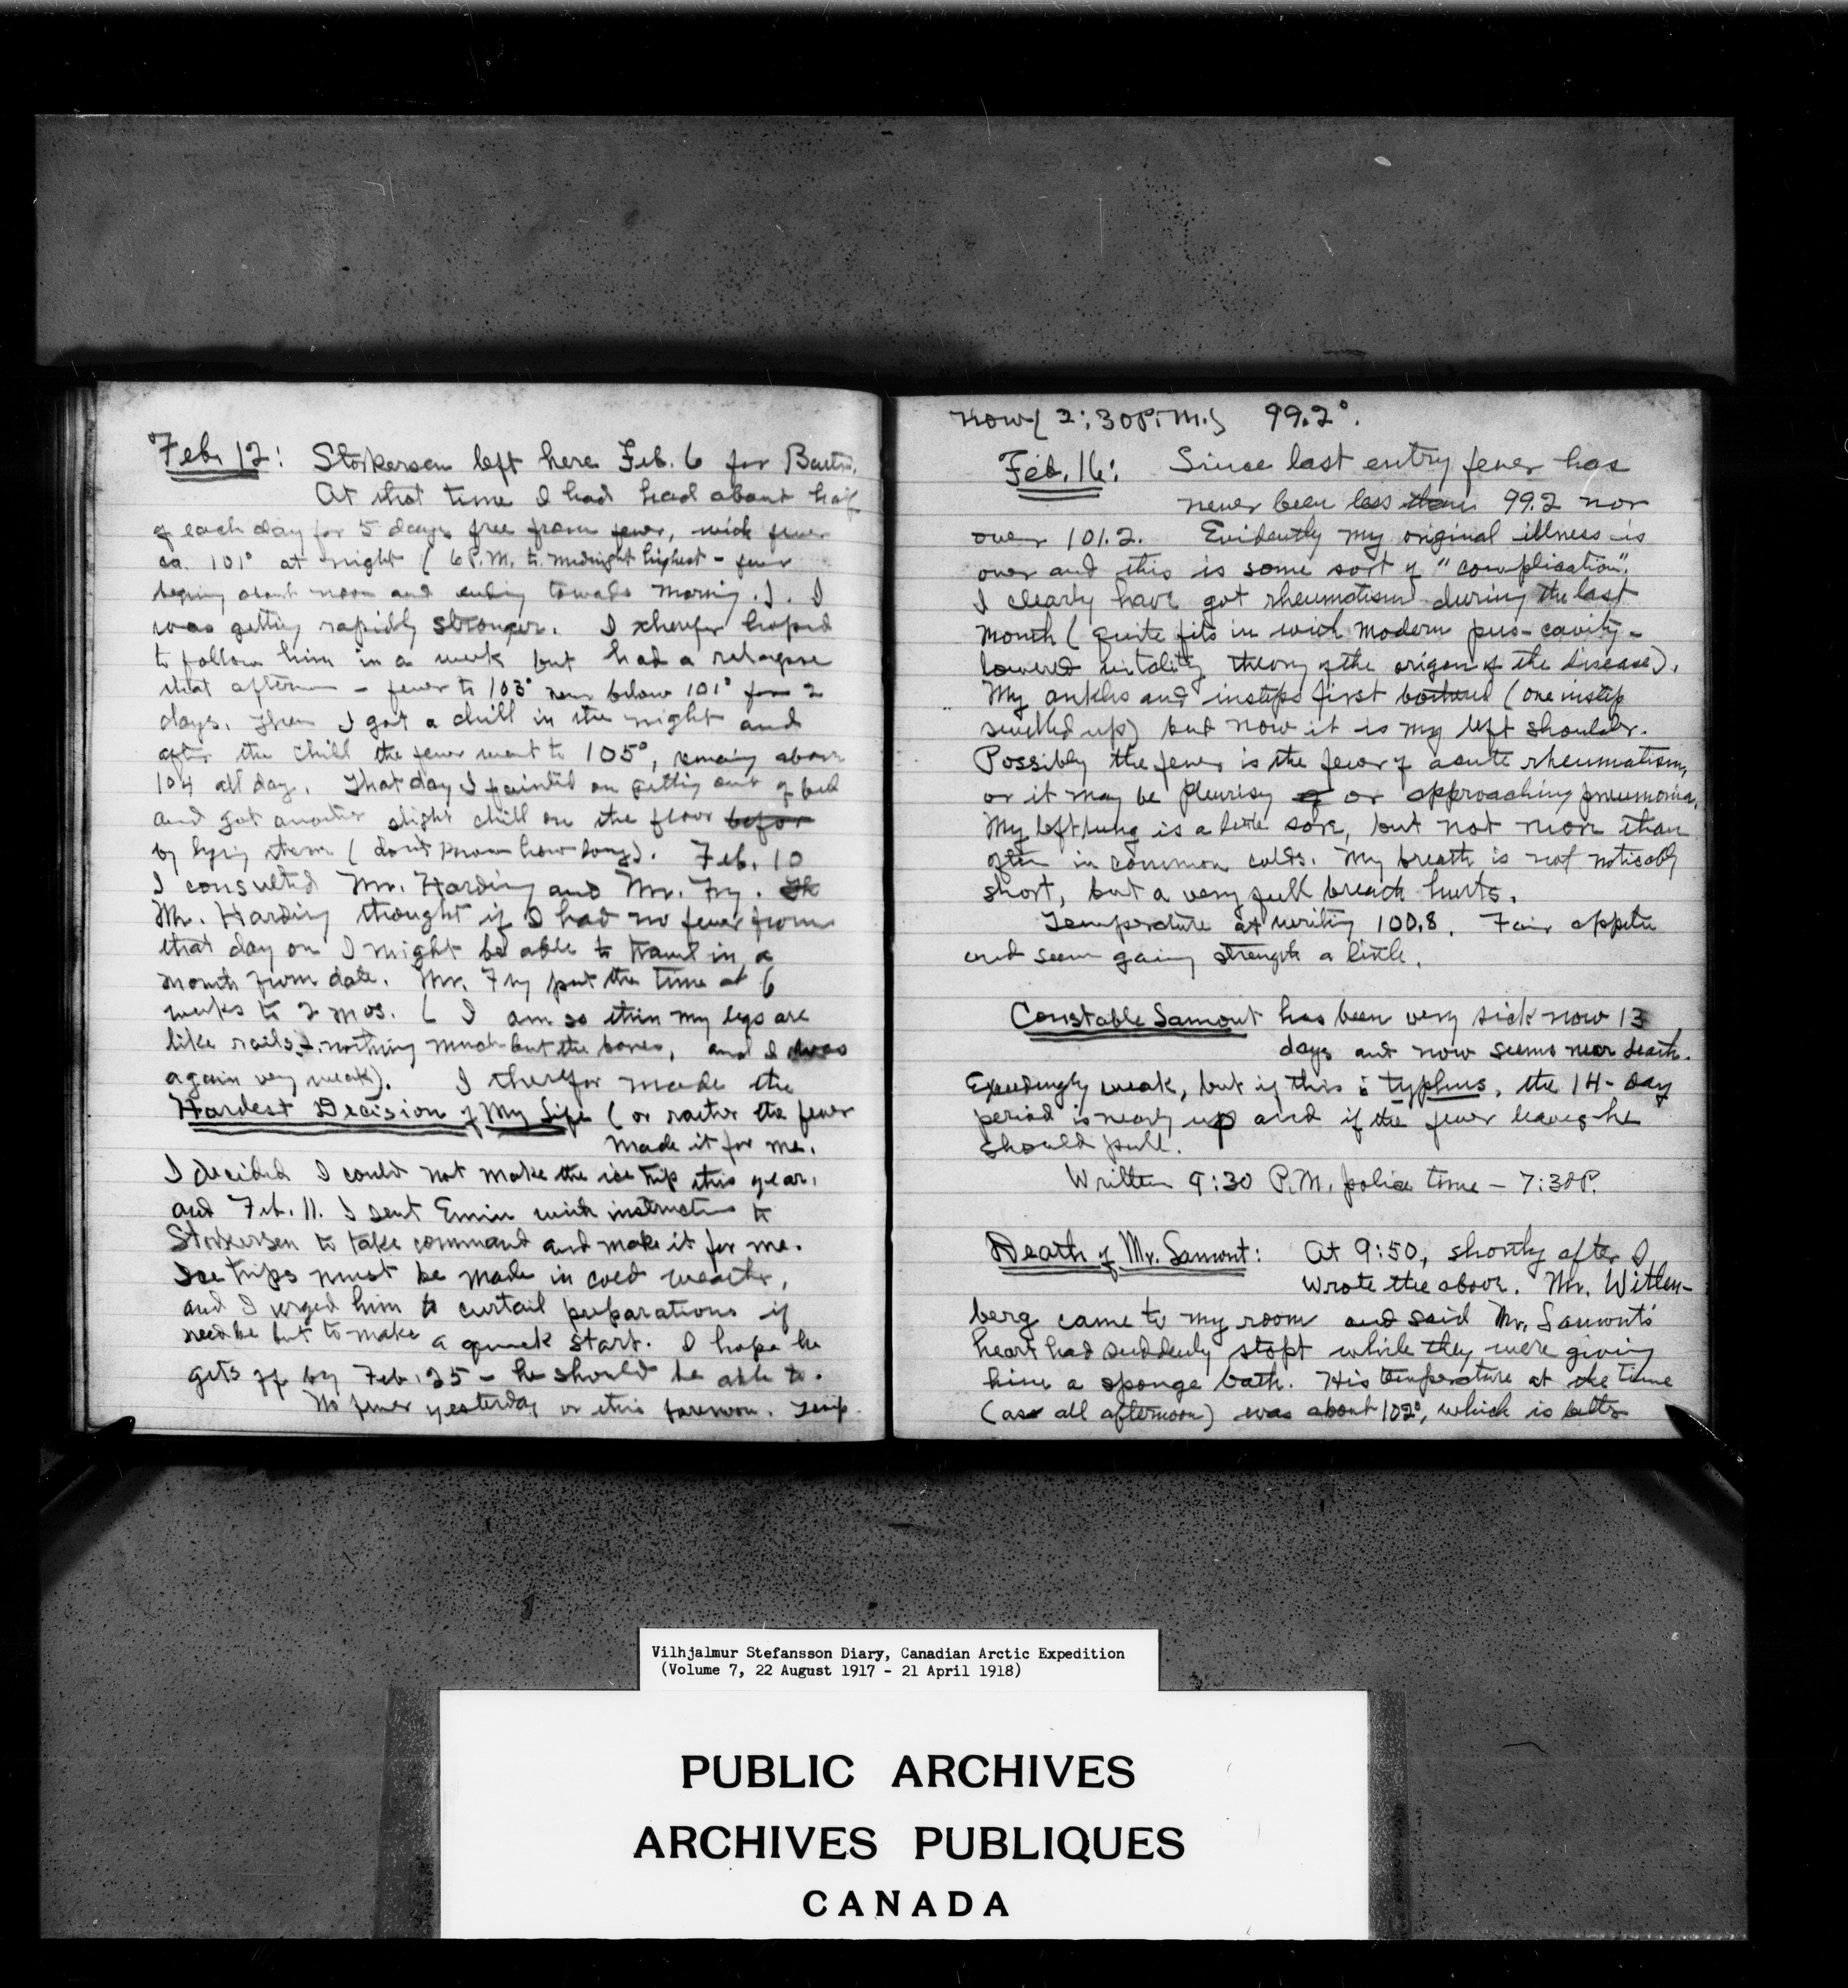 Feb. 12: Storkersen left here Feb. 6 for Barter.
At that time I had had about half
of each day for 5 days free from fever, with fever
ca. 101° at night (6 P.M. to midnight highest - fever
begining about noon and ending towards morning.). I
was getting rapidly stronger. I therefor hoped
to follow him in a week but had a relapse
that afternoon - fever to 103° never below 101° for 2
days. Then I got a chill in the night and
after the chill the fever went to 105°, remaing above
104 all day. That day I fainted on getting out of bed
and got another slight chill on the floor befor
by lying there (don't know how long). Feb. 10
I consulted Mr. Harding and Mr. Fry.
Mr. Harding thought if I had no fever from
that day on I might be able to travel in a
month from date. Mr. Fry put the time at 6
weeks to 2 mos. (I am so thin my legs are
like rails, - nothing much but the bones, and I was
again very weak). I therefor made the
Hardest Decision of My Life (or rather the fever
made it for me.
I decided I could not make the ice trip this year,
and Feb. 11. I sent Emiu with instructions to
Storkersen to take command and make it for me.
Ice trips must be made in cold weather,
and I urged him to curtail preparations if
need be but to make a quick start. I hope he
gets off by Feb. 25 - he should be able to.
No fever yesterday or this forenoon. Temp.
now (2:30 P.M.) 99.2°.
Feb. 16: Since last entry fever has
never been less than 99.2 nor
over 101.2. Evidently my original illness is
over and this is some sort of "complication".
I clearly have got rheumatism during the last
month (quite fits in with modern pus-cavity -
lowered vitality theory of the origin of the disease).
My ankles and insteps first bothered (one instep
swelled up) but now it is my left shoulder.
Possibly the fever is the fever of acute rheumatism,
or it may be pleurisy or approaching pneumonia.
My left lung is a little sore, but not more than
often in common colds. My breath is not noticably
short, but a very full breath hurts.
Temperature at writing 100.8. Fair appetite
and seem gaing strength a little.
Constable Lamont has been very sick now 13
days and now seems near death.
Exceedingly weak, but if this is typhus, the 14-day
period is nearly up and if the fever leaves he
should pull.
Written 9:30 P.M. police time - 7:30P.
Death of Mr. Lamont: At 9:50, shortly after I
wrote the above. Mr. Witten-
berg came to my room and said Mr. Lamont's
heart had suddenly stopt while they were giving
him a sponge bath. His temperature at the time
(as all afternoon) was about 102°, which is
Vilhjalmur Stefansson Diary, Canadian Arctic Expedition
(Volume 7, 22 August 1917 - 21 April 1918)
PUBLIC ARCHIVES
ARCHIVES PUBLIQUES
CANADA